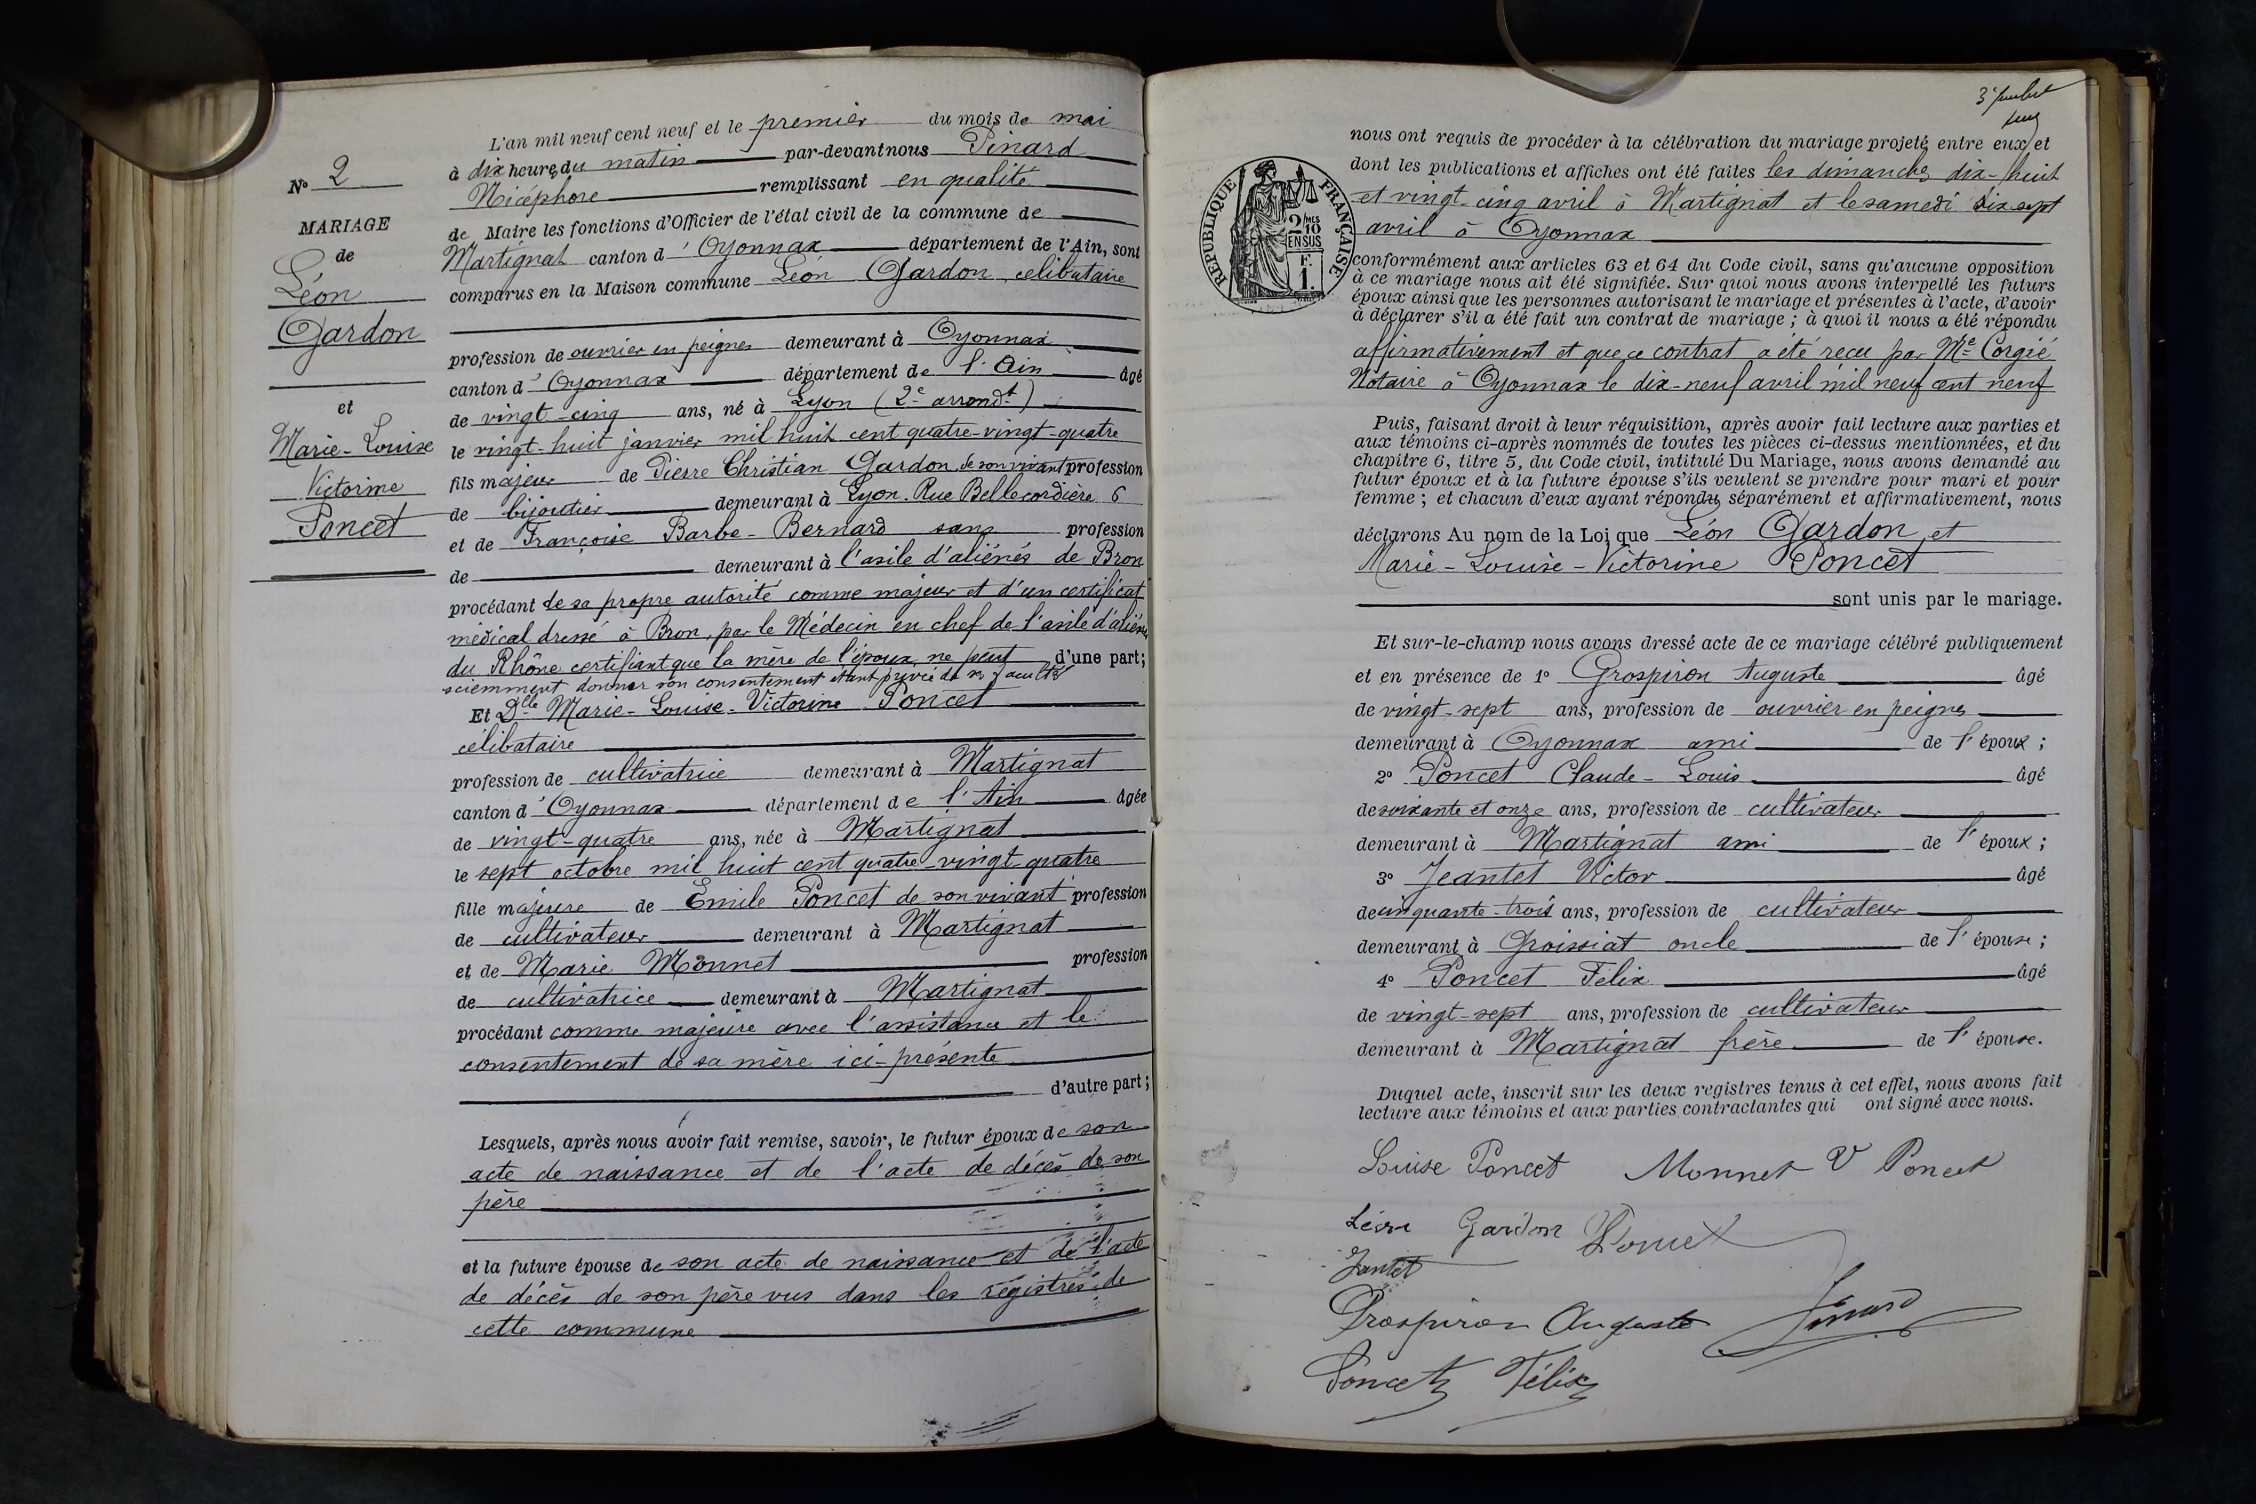 N° 2
MARIAGE
de
Léon
Gardon
et
Marie-Louise
Victorine
Poncet
L'an mil neuf cent neuf et le premier du mois de mai
à dix heures du matin par-devant nous Pinard
Nicéphore remplissant en qualité
de Maire les fonctions d'Officier de l'état civil de la commune de
Martignat canton d'Oyonnax département de l'Ain, sont
comparus en la Maison commune Léon Gardon, célibataire
profession de ouvrier en peignes demeurant à Oyonnax
canton d'Oyonnax département de l'Ain âgé
de vingt-cinq ans, né à Lyon (2e arrondt)
le vingt-huit janvier mil huit cent quatre-vingt-quatre
fils majeur de Pierre Christian Gardon de son vivant profession
de bijoutier demeurant à Lyon. Rue Bellecordière 6
et de Françoise Barbe-Bernard sans profession
de demeurant à l'asile d'aliénés de Bron
procédant de sa propre autorité comme majeur et d'un certificat
médical dressé à Bron, par le Médecin en chef de l'asile d'aliénés
du Rhône certifiant que la mère de l'époux ne peut d'une part;
sciemment donner son consentement étant privée de ses facultés
Et Dlle Marie-Louise-Victorine Poncet
célibataire
profession de cultivatrice demeurant à Martignat
canton d'Oyonnax département de l'Ain âgée
de vingt-quatre ans, née à Martignat
le sept octobre mil huit cent quatre-vingt quatre
fille majeure de Emile Poncet de son vivant profession
de cultivateur demeurant à Martignat
et de Marie Monnet profession
de cultivatrice demeurant à Martignat
procédant comme majeure avec l'assistance et le
consentement de sa mère ici-présente
d'autre part;
Lesquels, après nous avoir fait remise, savoir, le futur époux de son
acte de naissance et de l'acte de décès de son
père
et la future épouse de son acte de naissance et de l'acte
de décès de son père vus dans les régistres de
cette commune
nous ont requis de procéder à la célébration du mariage projeté entre eux et
dont les publications et affiches ont été faites les dimanches dix-huit
et vingt-cinq avril à Martignat et le samedi dix sept
avril à Oyonnax
RÉPUBLIQUE FRANÇAISE
2/10
EN SUS
F.
1.
conformément aux articles 63 et 64 du Code civil, sans qu'aucune opposition
à ce mariage nous ait été signifiée. Sur quoi nous avons interpellé les futurs
époux ainsi que les personnes autorisant le mariage et présentes à l'acte, d'avoir
à déclarer s'il a été fait un contrat de mariage; à quoi il nous a été répondu
affirmativement et que ce contrat a été reçu par Me Corgié
Notaire à Oyonnax le dix-neuf avril mil neuf cent neuf
Puis, faisant droit à leur réquisition, après avoir fait lecture aux parties et
aux témoins ci-après nommés de toutes les pièces ci-dessus mentionnées, et du
chapitre 6, titre 5, du Code civil, intitulé Du Mariage, nous avons demandé au
futur époux et à la future épouse s'ils veulent se prendre pour mari et pour
femme; et chacun d'eux ayant répondu séparément et affirmativement, nous
déclarons Au nom de la Loi que Léon Gardon et
Marie-Louise-Victorine Poncet
sont unis par le mariage.
Et sur-le-champ nous avons dressé acte de ce mariage célébré publiquement
et en présence de 1° Grospiron Auguste âgé
de vingt-sept ans, profession de ouvrier en peignes
demeurant à Oyonnax ami de l'époux;
2° Poncet Claude-Louis âgé
de soixante et onze ans, profession de cultivateur
demeurant à Martignat ami de l'époux;
3° Jeantet Victor âgé
de cinquante-trois ans, profession de cultivateur
demeurant à Groissiat oncle de l'épouse;
4° Poncet Félix âgé
de vingt-sept ans, profession de cultivateur
demeurant à Martignat frère de l'épouse.
Duquel acte, inscrit sur les deux registres tenus à cet effet, nous avons fait
lecture aux témoins et aux parties contractantes qui ont signé avec nous.
Louise Poncet Monnet V Poncet
Léon Gardon
Jantet
Grospiron Auguste Pinard
Poncet Félix